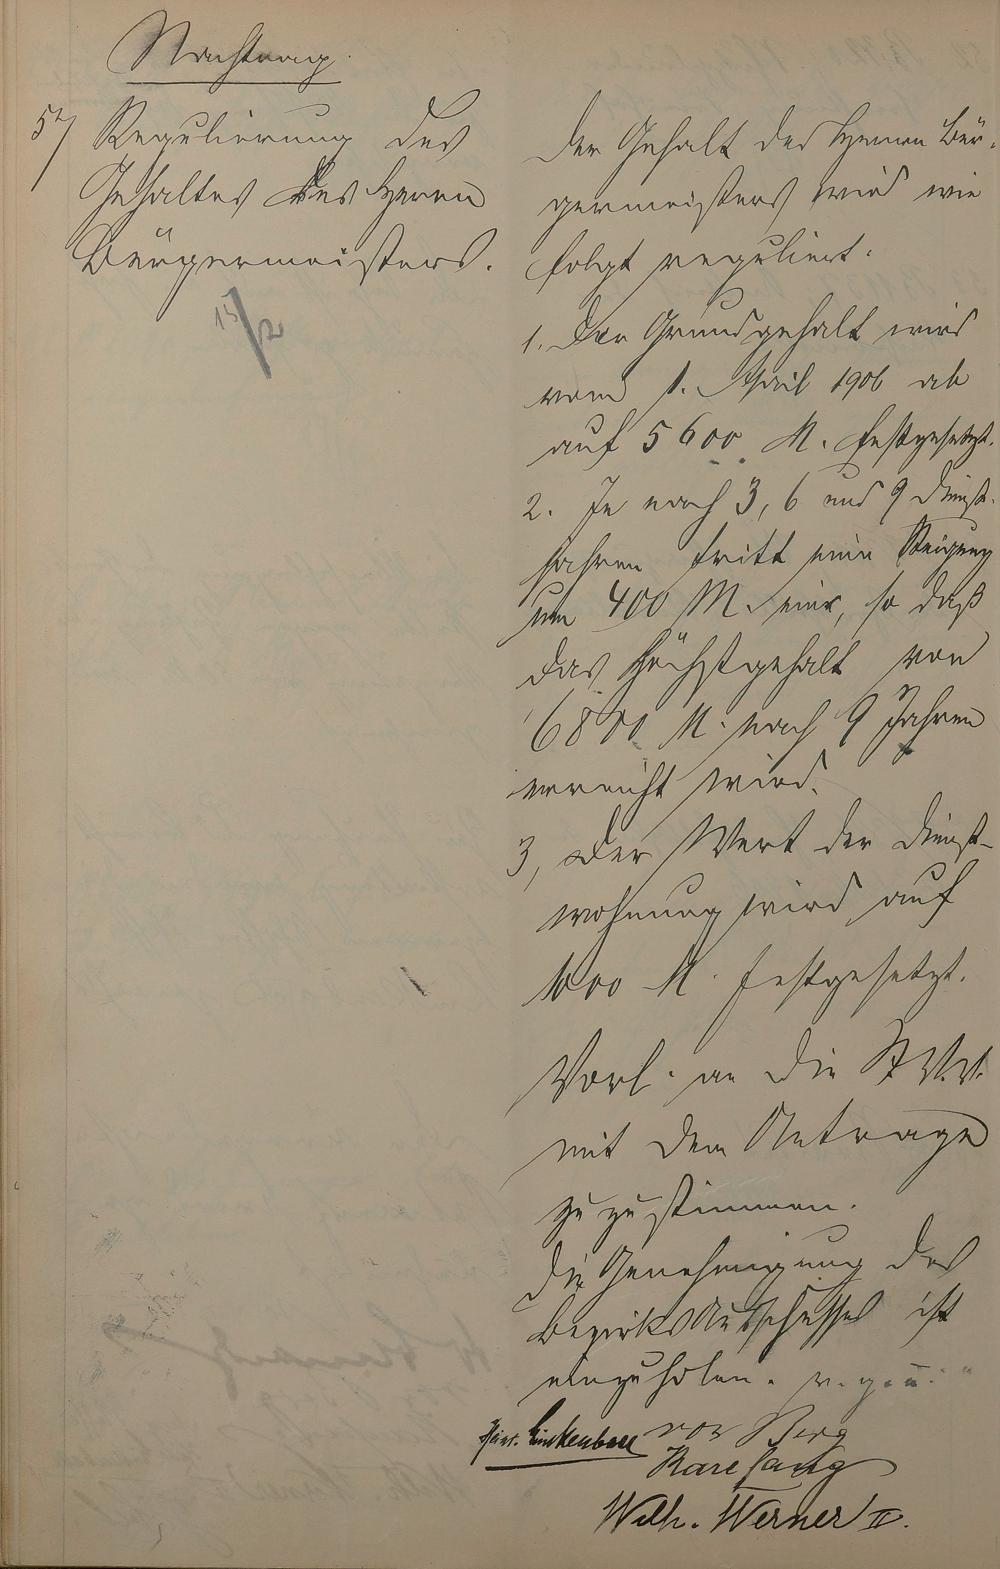 Nachtrag.
52/ Regulierung des
Gehaltes des Herrn
Bürgermeisters.
15/2
Der Gehalt des Herrn Bür-
germeisters wird wie
folgt reguliert:
1. Der Grundgehalt wird
vom 1. April 1906 ab
auf 5600 M. festgesetzt.
2. Je nach 3, 6 und 9 Dienst-
jahren tritt eine Steigung
um 400 M. ein, so daß
das Höchstgehalt von
6800 M. nach 9 Jahren
erreicht wird.
3, Der Wert der Dienst-
wohnung wird auf
1000 M. festgesetzt.
Vorl. an die St.V.V.
mit dem Antrage
zuzustimmen.
Die Genehmigung des
Bezirksausschusses ist
einzuholen. v. g. u.
von Berg
Karl Lang
Wilh. Werner II.